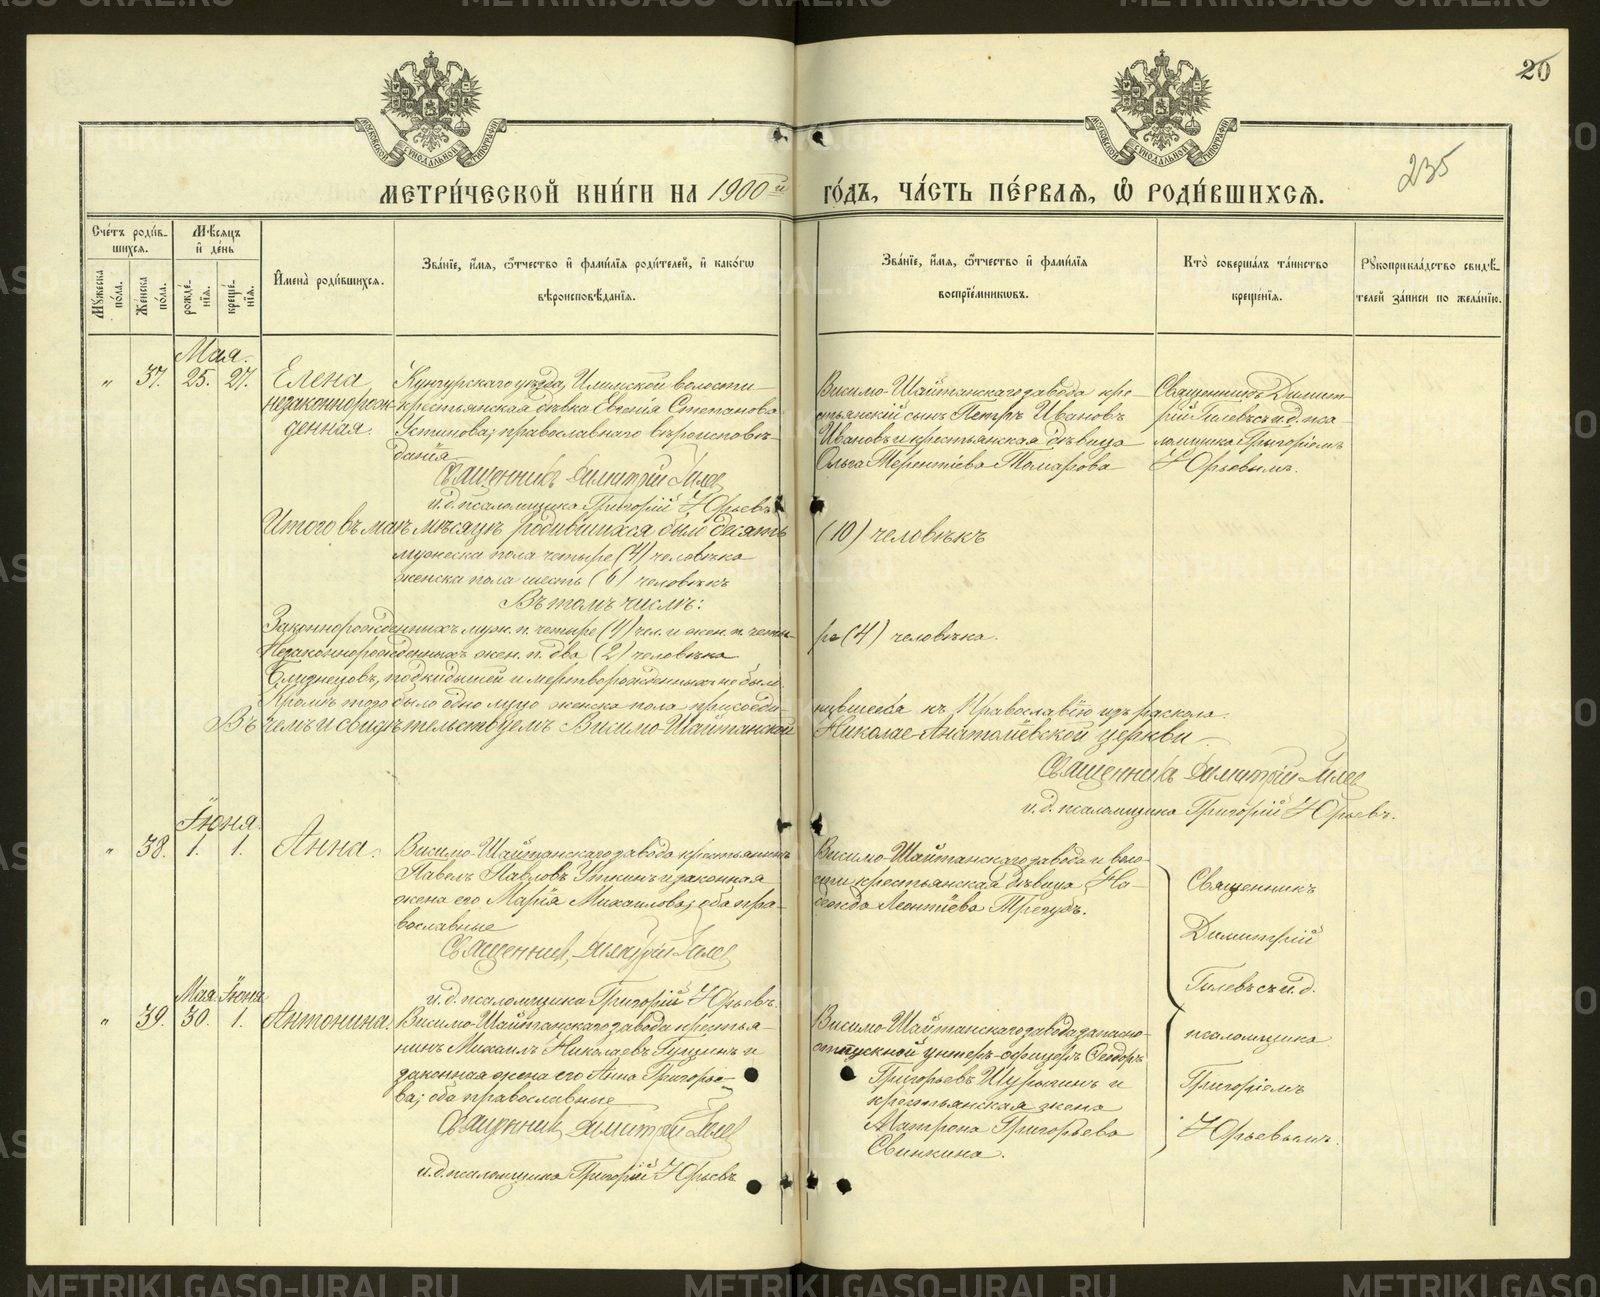 20
235
МЕТРИ́ЧЕСКОЙ КНИ́ГИ НА 1900й ГО́ДЪ, ЧА́СТЬ ПЕ́РВАѦ, Ѽ РОДИ́ВШИХСѦ.
Сче́тъ роди́в-
шихсѧ.
Мѣ́сѧцъ
и҆ де́нь
И҆мена̀ роди́вшихсѧ.
Зва́нїе, и҆́мѧ, ѻ҆́тчество и҆ фами́лїѧ роди́телей, и҆ како́гѡ
вѣроисповѣ́данїѧ.
Зва́нїе, и҆́мѧ, ѻ҆́тчество и҆ фами́лїѧ
воспрїе́мникѡвъ.
Кто̀ соверша́лъ та́инство
креще́нїѧ.
Рꙋкоприкла́дство свидѣ́-
телей за́писи по жела́нїю.
Мꙋ́жеска
по́ла.
Же́нска
по́ла.
рожде́-
нїѧ.
креще́-
нїѧ.
Мая.
" 37. 25. 27.
Елена
незаконнорож-
денная.
Кунгурскаго уѣзда, Илимской волости
крестьянская дѣвка Евгенія Степанова
Устинова; православнаго вѣроисповѣ-
данія
Священникъ Димитрій Гилевъ
и. д. псаломщика Григорій Юрьевъ
Висимо-Шайтанскаго завода кре-
стьянскій сынъ Петръ Ивановъ
Ивановъ и крестьянская дѣвица
Ольга Терентіева
Священникъ Димит-
рій Гилевъ съ и. д. пса-
ломщика Григоріемъ
Юрьевымъ.
Итого въ маѣ мѣсяцѣ родившихся было десять (10) человѣкъ
мужеска пола четыре (4) человѣка
женска пола шесть (6) человѣкъ
Въ томъ числѣ:
Законнорожденныхъ муж. п. четыре (4) чел. и жен. п. четы- ре (4) человѣка.
Незаконнорожденныхъ жен. п. два (2) человѣка
Близнецовъ, подкидышей и мертворожденныхъ не было
Кромѣ того было одно лицо женска пола присоеди- нившееся къ Православію изъ раскола.
Въ чемъ и свидѣтельствуемъ Висимо-Шайтанской Николае-Анатоліевской церкви
Священникъ Димитрій Гилевъ
и. д. псаломщика Григорій Юрьевъ.
Іюня.
" 38. 1. 1.
Анна.
Висимо-Шайтанскаго завода крестьянинъ
Павелъ Павловъ Уткинъ и законная
жена его Марія Михаилова; оба пра-
вославные
Священникъ Димитрій Гилевъ
и. д. псаломщика Григорій Юрьевъ.
Висимо-Шайтанскаго завода и воло-
сти крестьянская дѣвица На-
дежда Леонтіева
Священникъ
Димитрій
Гилевъ съ и. д.
псаломщика
Григоріемъ
Юрьевымъ.
Мая Іюня
" 39. 30. 1.
Антонина.
Висимо-Шайтанскаго завода крестья-
нинъ Михаилъ Николаевъ Гущинъ и
законная жена его Анна Григорье-
ва; оба православные
Священникъ Димитрій Гилевъ
и. д. псаломщика Григорій Юрьевъ
Висимо-Шайтанскаго завода запасно-
отпускной унтеръ-офицеръ Ѳеодоръ
Григорьевъ Шурыгинъ и
крестьянская жена
Матрона Григорьева
Свинкина.
METRIKI.GASO-URAL.RU